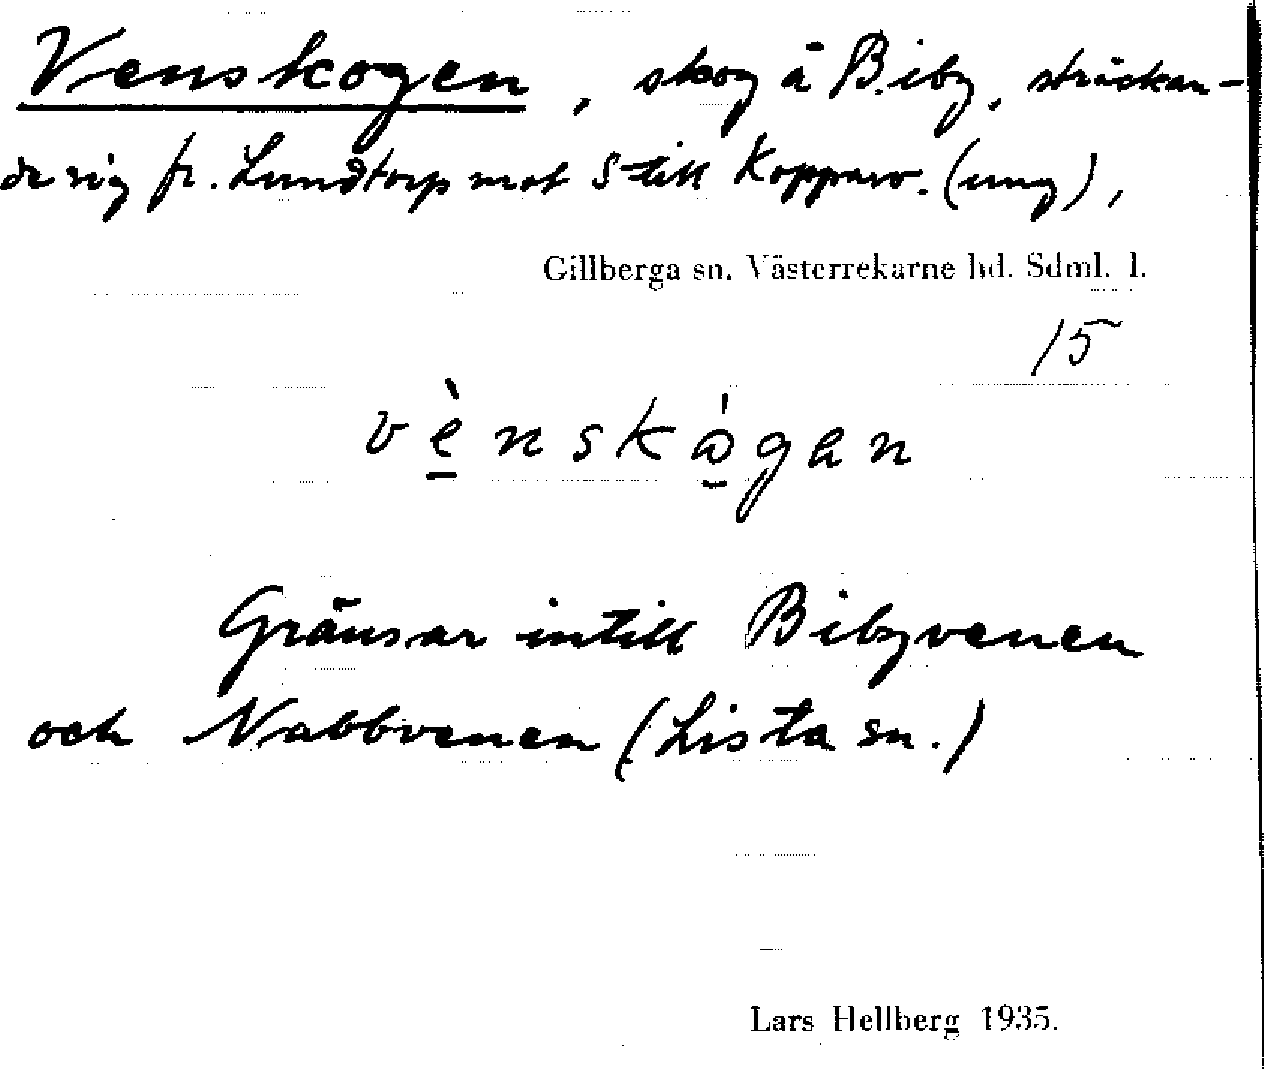 Venskogen, skog å Biby, sträckan-
de sig fr. Lundtorp mot S till Kopparv. (ung),
Gillberga sn. Västerrekarne hd. Sdml. l.
15
vènskògan
Gränsar intill Bibyvenen
och Nabbvenen (Lista sn.)
Lars Hellberg 1935.